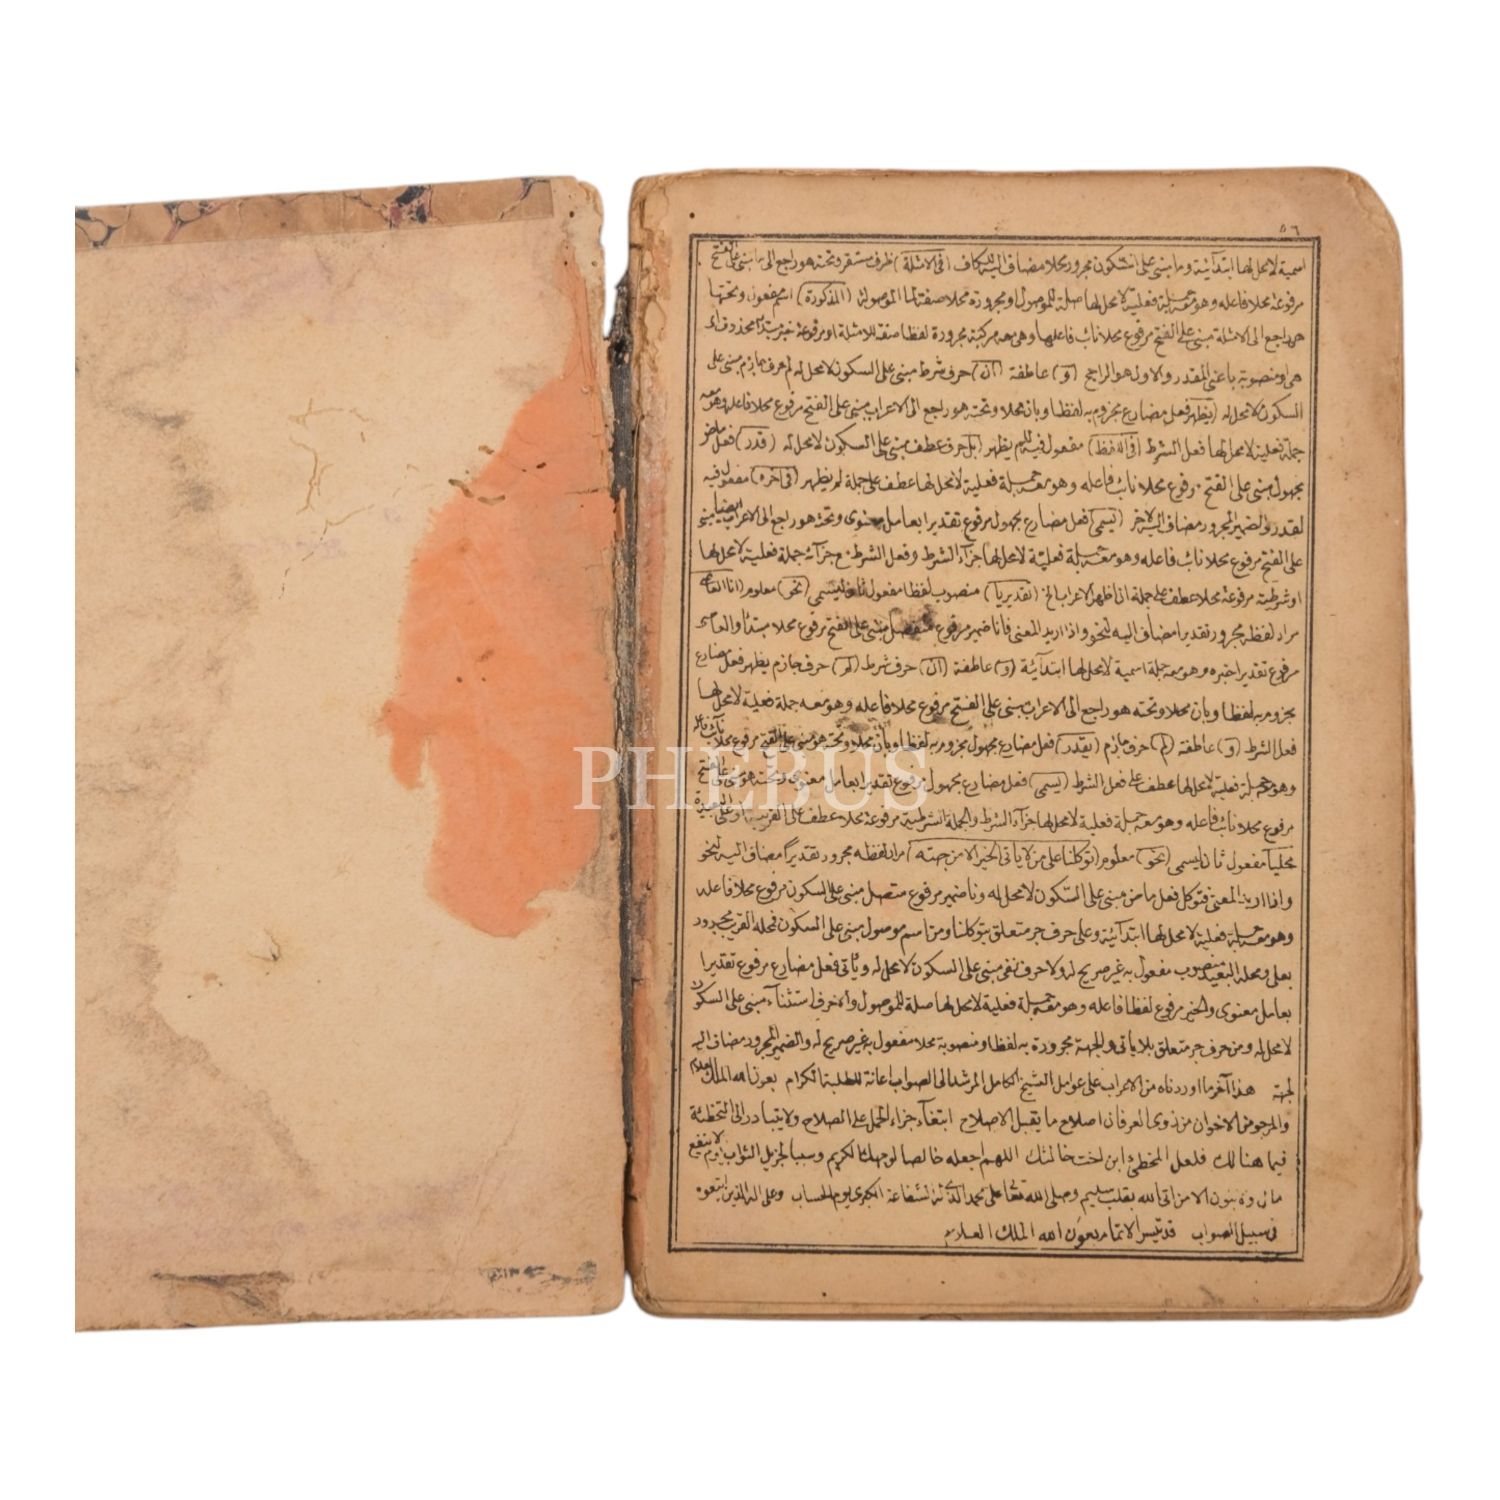 ٥٦
اسمية لا محل لها ابتدآئية وما مبنى على السكون مجرور محلا مضاف اليه للكاف (فى الامثلة) ظرف مستقر وتحته هو راجع الى ما مبنى على الفتح
مرفوعة محلا فاعله وهو معه جملة فعلية لا محل لها صلة للموصول او مجرورة محلا صفة لما الموصوفة (المذكورة) اسم مفعول وتحتها
هى راجع الى الامثلة مبنى على الفتح مرفوع محلا نائب فاعلها وهى معه مركبة مجرورة لفظا صفة للامثلة او مرفوعة خبر مبتدأ محذوف اى
هى او منصوبة باعنى المقدر والاول هو الراجح (و) عاطفة (ان) حرف شرط مبنى على السكون لا محل له لم حرف جازم مبنى على
السكون لا محل له (يظهر) فعل مضارع مجزوم به لفظا وبان محلا وتحته هو راجع الى الاعراب مبنى على الفتح مرفوع محلا فاعله وهو معه
جملة فعلية لا محل لها فعل الشرط (فى اللفظ) مفعول فيه للم يظهر (بل) حرف عطف مبنى على السكون لا محل له (قدر) فعل ماض
مجهول مبنى على الفتح مرفوع محلا نائب فاعله وهو معه جملة فعلية لا محل لها عطف على جملة لم يظهر (فى آخره) مفعول فيه
لقدر والضمير المجرور مضاف اليه لآخر (يسمى) فعل مضارع مجهول مرفوع تقديرا بعامل معنوى وتحته هو راجع الى الاعراب ايضا مبنى
على الفتح مرفوع محلا نائب فاعله وهو معه جملة فعلية لا محل لها جزآء الشرط وفعل الشرط مع جزآئه جملة فعلية لا محل لها
او شرطية مرفوعة محلا عطف على جملة ان ظهر الاعراب الخ (تقديريا) منصوب لفظا مفعول ثان ليسمى (نحو) معلوم (انا العاصى
مراد لفظه مجرور تقديرا مضاف اليه لنحو واذا اريد المعنى فانا ضمير مرفوع منفصل مبنى على الفتح مرفوع محلا مبتدأ والعاصى
مرفوع تقديرا خبره وهو معه جملة اسمية لا محل لها ابتدآئية (و) عاطفة (ان) حرف شرط (لم) حرف جازم يظهر فعل مضارع
مجزوم به لفظا وبان محلا وتحته هو راجع الى الاعراب مبنى على الفتح مرفوع محلا فاعله وهو معه جملة فعلية لا محل لها
فعل الشرط (و) عاطفة (لم) حرف جازم (يقدر) فعل مضارع مجهول مجزوم به لفظا وبان محلا وتحته هو مبنى على الفتح مرفوع محلا نائب فاعله
وهو معه جملة فعلية لا محل لها عطف على فعل الشرط (يسمى) فعل مضارع مجهول مرفوع تقديرا بعامل معنوى وتحته هو مبنى على الفتح
مرفوع محلا نائب فاعله وهو معه جملة فعلية لا محل لها جزآء الشرط والجملة الشرطية مرفوعة محلا عطف على القريبة او على البعيدة
محليا مفعول ثان ليسمى (نحو) معلوم (توكلنا على من لا يأتى الخير الا من جهته) مراد لفظه مجرور تقديرا مضاف اليه لنحو
واذا اريد المعنى فتوكل فعل ماض مبنى على السكون لا محل له ونا ضمير مرفوع متصل مبنى على السكون مرفوع محلا فاعله
وهو معه جملة فعلية لا محل لها ابتدآئية وعلى حرف جر متعلق بتوكلنا ومن اسم موصول مبنى على السكون فمحله القريب مجرور
بعلى ومحله البعيد منصوب مفعول به غير صريح له ولا حرف نفى مبنى على السكون لا محل له ويأتى فعل مضارع مرفوع تقديرا
بعامل معنوى والخير مرفوع لفظا فاعله وهو معه جملة فعلية لا محل لها صلة للموصول والا حرف استثنآء مبنى على السكون
لا محل له ومن حرف جر متعلق بلا يأتى والجهة مجرورة به لفظا ومنصوبة محلا مفعول به غير صريح له والضمير المجرور مضاف اليه
لجهة هذا آخر ما اوردناه من الاعراب على عوامل الشيخ الكامل المرشد الى الصواب اعانة للطلبة الكرام بعون الله الملك العلام
والمرجو من الاخوان من ذوى العرفان اصلاح ما يقبل الاصلاح ابتغآء جزاء الحمل على الصلاح ولا يتبادر الى التخطئة
فيما هنالك فلعل المخطئ ابن اخت خالتك اللهم اجعله خالصا لوجهك الكريم وسببا لجزيل الثواب يوم لا ينفع
مال ولا بنون الا من اتى الله بقلب سليم وصلى الله تعالى على محمد الذى له الشفاعة الكبرى يوم الحساب وعلى اله الذين اتبعوه
فى سبيل الصواب قد تيسر الاتمام بعون الله الملك العلام
PHEBUS